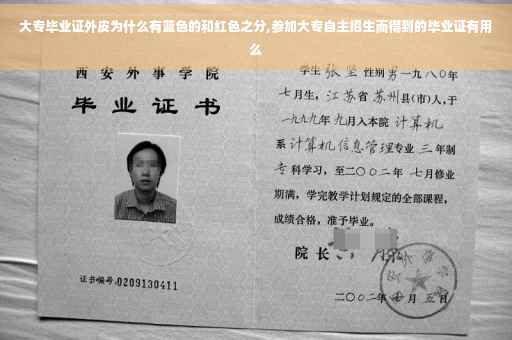 大专毕业证外皮为什么有蓝色的和红色之分,参加大专自主招生而得到的毕业证有用
么
西安外事学院
毕业证书
证书编号:0209130411
学生张坚性别男一九八〇年
七月生,江苏省苏州县(市)人,于
一九九九年九月入本院计算机
系计算机信息管理专业三年制
专科学习,至二〇〇二年七月修业
期满,学完教学计划规定的全部课程,
成绩合格,准予毕业。
院长
二〇〇二年七月五日